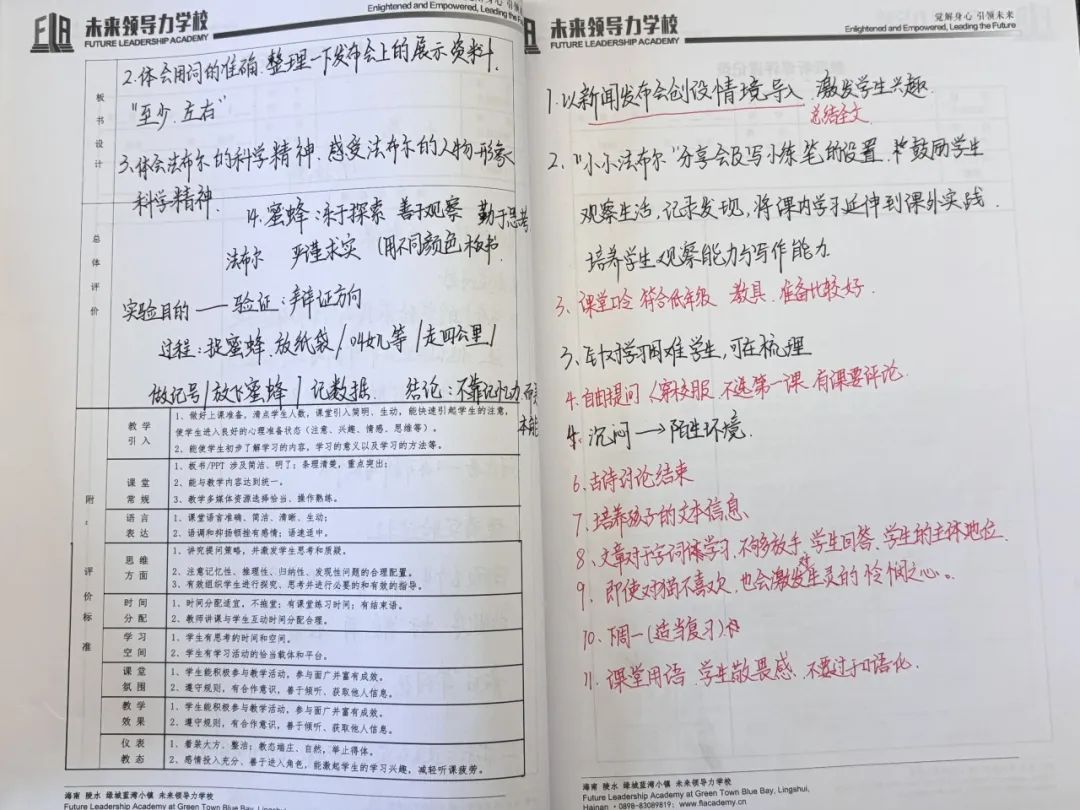 FLA 未来领导力学校
FUTURE LEADERSHIP ACADEMY
Enlightened and Empowered, Leading the
板书设计
2.体会用词的准确.整理一下发布会上的展示资料.
"至少.左右"
3.体会法布尔的科学精神.感受法布尔的人物形象
科学精神.
总体评价
4.蜜蜂:乐于探索 善于观察 勤于思考
法布尔 严谨求实 (用不同颜色板书
实验目的——验证:辩证方向
过程:捉蜜蜂.放纸袋/叫女儿等/走四公里/
做记号/放飞蜜蜂/记数据. 结论:不靠记忆力而是
本能
附:评价标准
教学引入
1、做好上课准备,清点学生人数,课堂引入简明、生动,能快速引起学生的注意,
使学生进入良好的心理准备状态(注意、兴趣、情感、思维等)。
2、能使学生初步了解学习的内容,学习的意义以及学习的方法等。
课堂常规
1、板书/PPT 涉及简洁、明了;条理清楚,重点突出;
2、能与教学内容达到统一。
3、教学多媒体资源选择恰当、操作熟练。
语言表达
1、课堂语言准确、简洁、清晰、生动;
2、语调和抑扬顿挫有感情;语速适中。
思维方面
1、讲究提问策略,并激发学生思考和质疑。
2、注意记忆性、推理性、归纳性、发现性问题的合理配置。
3、有效组织学生进行探究、思考并进行必要的和有效的指导。
时间分配
1、时间分配适宜,不拖堂;有课堂练习时间;有结束语。
2、教师讲课与学生互动时间分配合理。
学习空间
1、学生有思考的时间和空间。
2、学生有学习活动的恰当载体和平台。
课堂氛围
1、学生能积极参与教学活动,参与面广并富有成效。
2、遵守规则,有合作意识,善于倾听、获取他人信息。
教学效果
1、学生能积极参与教学活动,参与面广并富有成效。
2、遵守规则,有合作意识,善于倾听、获取他人信息。
仪表教态
1、着装大方、整洁;教态端庄、自然,举止得体。
2、感情投入充分、善于进入角色,能激起学生的学习兴趣,减轻听课疲劳。
海南 陵水 绿城蓝湾小镇 未来领导力学校
Future Leadership Academy at Green Town Blue Bay, Lingshui,
未来领导力学校
FUTURE LEADERSHIP ACADEMY
觉解身心 引领未来
Enlightened and Empowered, Leading the Future
1.以新闻发布会创设情境导入 激发学生兴趣.
总结全文
2."小小法布尔"分享会及写小练笔的设置.鼓励学生
观察生活,记录发现,将课内学习延伸到课外实践.
培养学生观察能力与写作能力
3.课堂口令 符合低年级 教具.准备比较好.
3.针对学习困难学生,可在梳理
4.自由提问 (穿校服 不选第一课.有课要评论.
4.沉闷→陌生环境.
6.古诗讨论结束
7.培养孩子的文本信息、
8.文章对于字词学习.不够放手.学生回答.学生的主体地位.
9.即使对猫不喜欢,也会激发生灵的怜悯之心。
10.下周一(适当复习)
11.课堂用语.学生敬畏感.不要过于口语化.
海南 陵水 绿城蓝湾小镇 未来领导力学校
Future Leadership Academy at Green Town Blue Bay, Lingshui,
Hainan • 0898-83089819; www.flacademy.cn